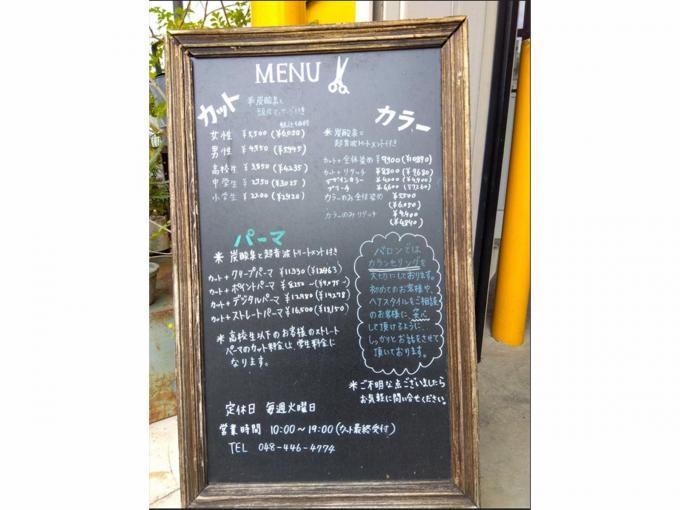 MENU
カット
※炭酸泉と
頭皮マッサージ付き
女性 ¥5,500 (¥6,050)
男性 ¥4,950 (¥5445)
高校生 ¥3,850 (¥4235)
中学生 ¥2750 (¥3025)
小学生 ¥2200 (¥2420)
カラー
※炭酸泉と
超音波トリートメント付き
カット+全体染め ¥9900 (¥10890)
カット+リタッチ ¥8800 (¥9680)
ブリーチ ¥6600 (¥7260)
カラーのみ全体染め ¥5500
(¥6,050)
カラーのみリタッチ ¥4,400
(¥4840)
パーマ
※炭酸泉と超音波トリートメント付き
カット+クリープパーマ ¥11,330 (¥12463)
カット+ポイントパーマ ¥8250~(¥9075~)
カット+デジタルパーマ ¥12,980 (¥14278)
カット+ストレートパーマ ¥16,500 (¥18,150)
※高校生以下のお客様のストレート
パーマのカット料金は、学生料金に
なります。
バロンでは
カウンセリングを
大切にしております。
初めてのお客様や、
ヘアスタイルをご相談
のお客様に、安心
して頂けるように、
しっかりとお話をさせて
頂いております。
※ご不明な点ございましたら
お気軽に問い合せください。
定休日 毎週火曜日
営業時間 10:00~19:00(カット最終受付)
TEL 048-446-4774